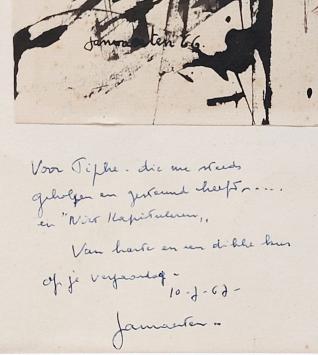 Janmaarten 66
Voor Tiphe. die me steeds
geholpen en gesteund heeft.....
en "Niet Kapituleren„
Van harte en een dikke kus
op je verjaardag -
10-7-67-
Janmaarten..